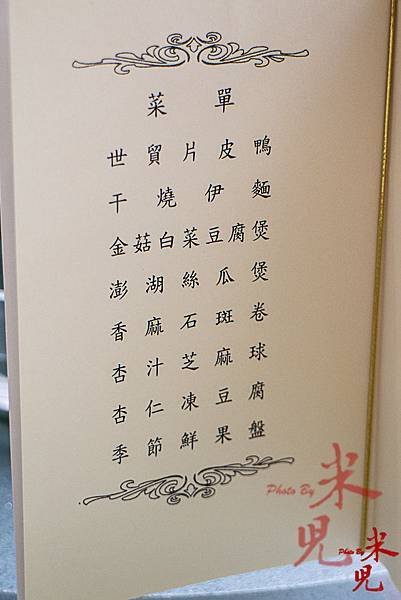 菜單
世貿片皮鴨
干燒伊麵
金菇白菜豆腐煲
澎湖絲瓜煲
香麻石斑卷
杏汁芝麻球
杏仁凍豆腐
季節鮮果盤
Photo By 米兒
Photo By 米兒